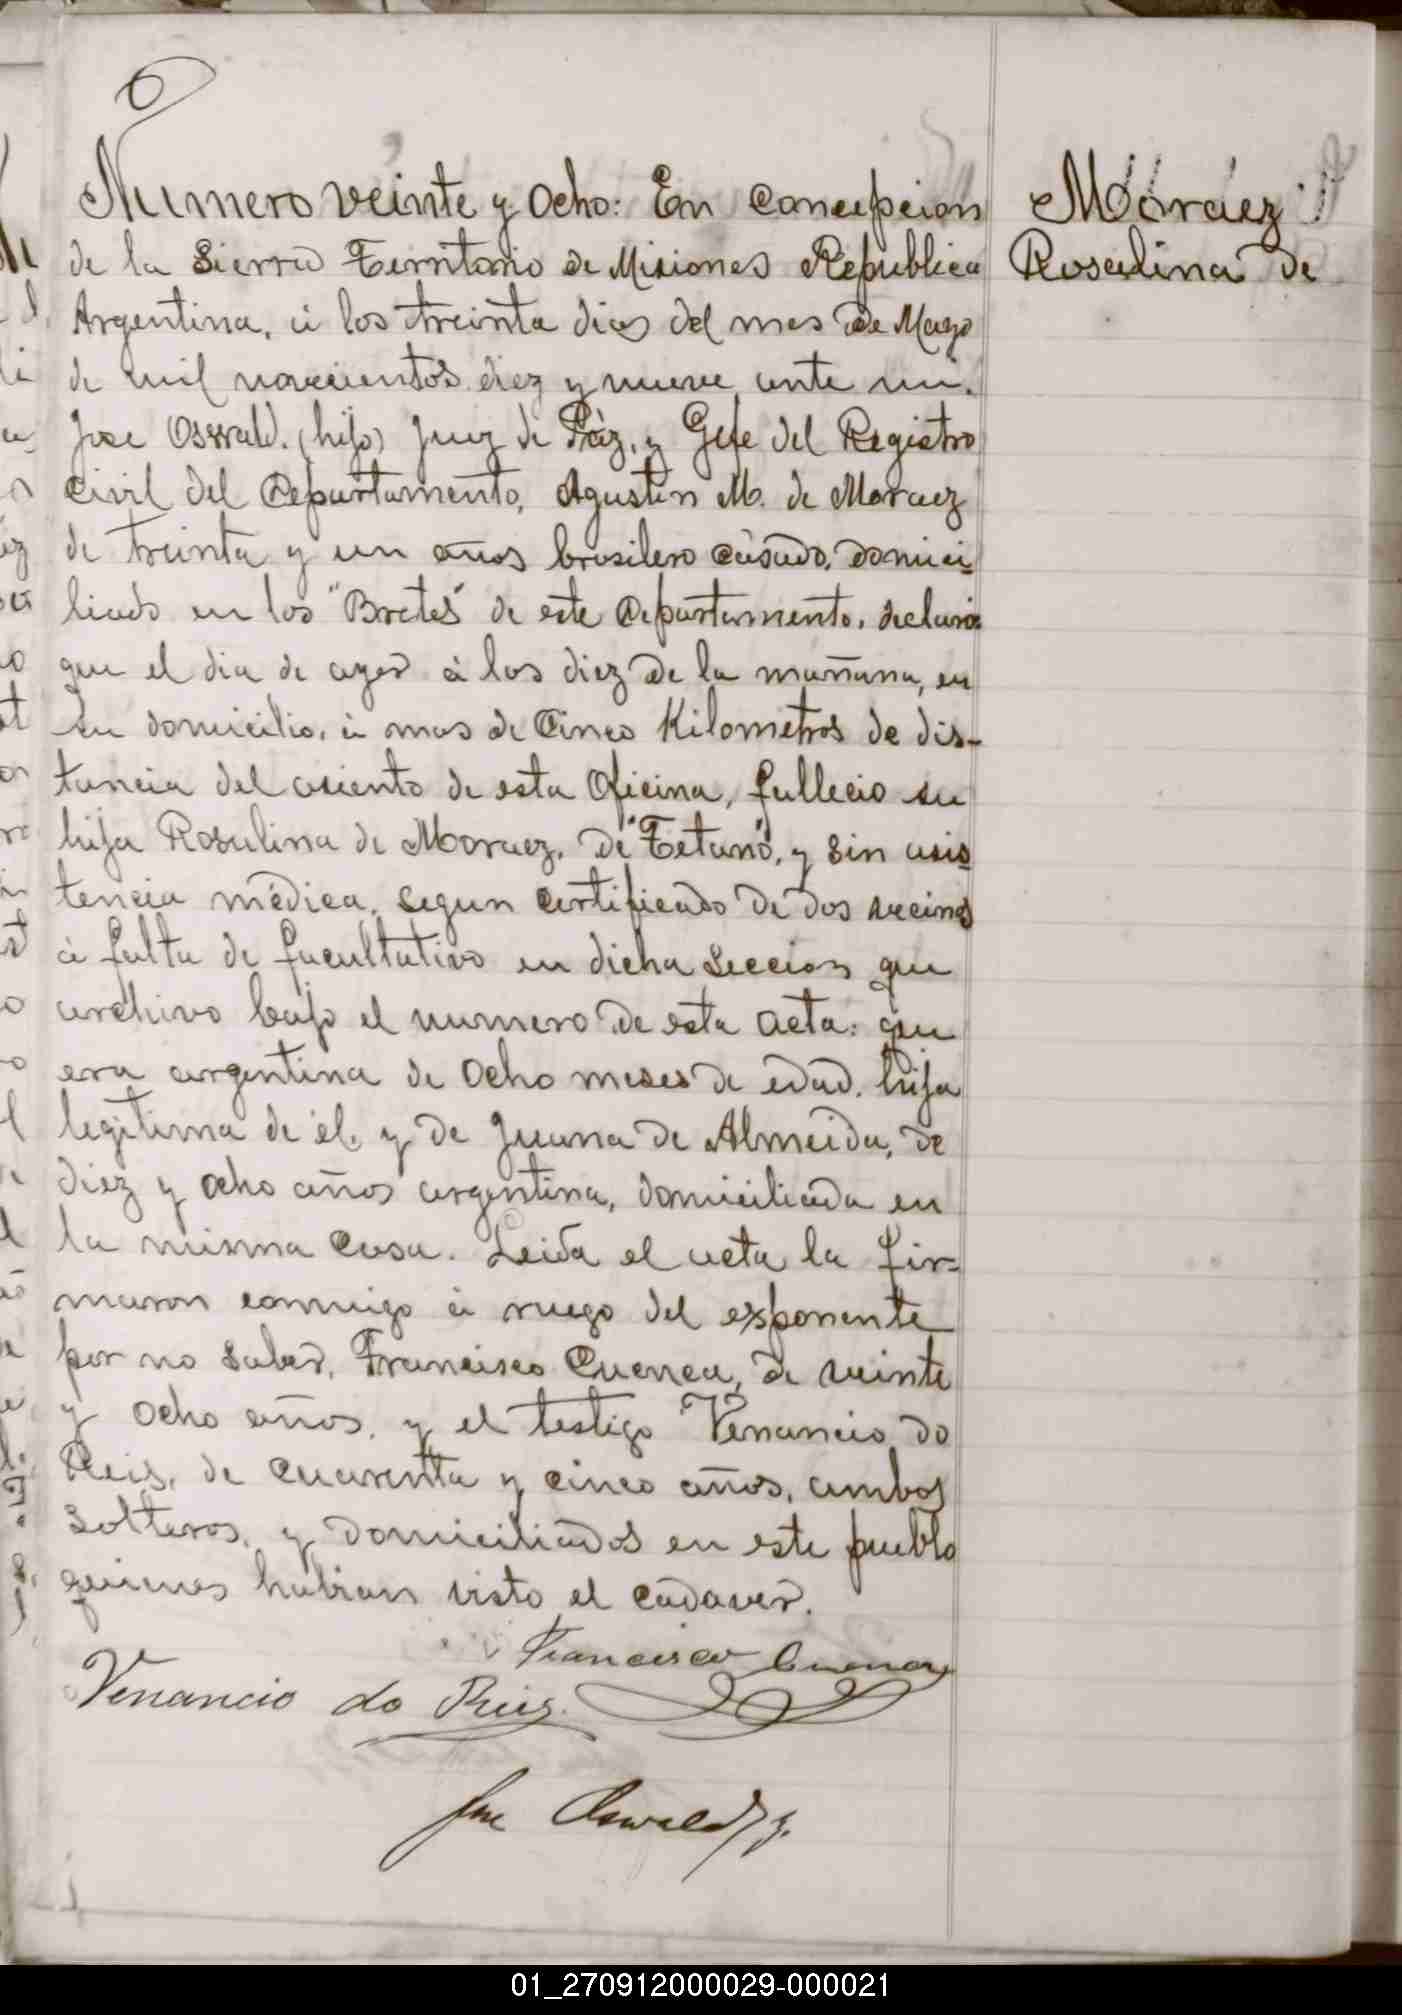 Numero veinte y ocho: En Concepcion
de la Sierra Territorio de Misiones Republica
Argentina, á los treinta dias del mes de Mayo
de mil novecientos diez y nueve ante mi.
Jose Osvald. (hijo) Juez de Páz, y Gefe del Registro
Civil del Departamento, Agustin M. de Moraez
de treinta y un años brasilero casado, domici-
liado en los "Bretes" de este Departamento, declaró:
que el dia de ayer á las diez de la mañana, en
su domicilio, á mas de Cinco Kilometros de dis-
tancia del asiento de esta Oficina, fallecio su
hija Rosalina de Moraez, de "Tetano", y sin asis-
tencia médica, segun certificado de dos vecinos
á falta de facultativo en dicha seccion que
archivo bajo el numero de esta acta: que
era argentina de ocho meses de edad. hija
legitima de él, y de Juana de Almeida, de
diez y ocho años argentina, domiciliada en
la misma casa. Leida el acta la fir=
maron conmigo á ruego del exponente
por no saber, Francisco Cuenca, de veinte
y ocho años, y el testigo Venancio do
Reis, de cuarenta y cinco años, ambos
solteros, y domiciliados en este pueblo
quienes habian visto el cadaver.
Francisco Cuenca
Venancio do Reis.
Jose Oswald
Moraez
Rosalina de
01_270912000029-000021